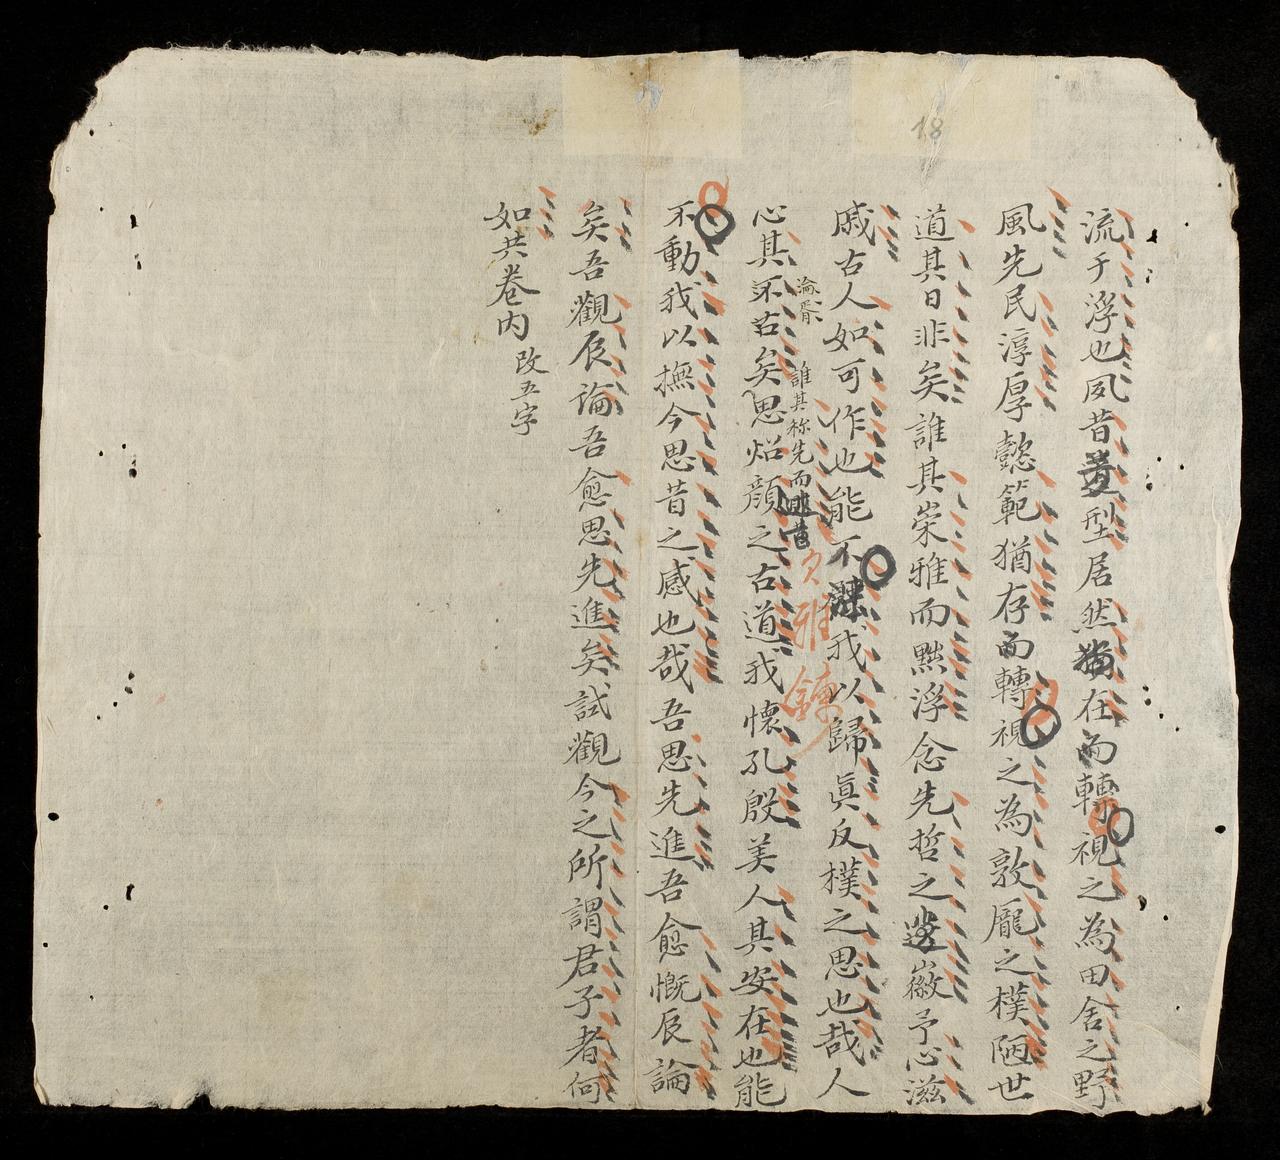 流于浮也夙昔型居然猶在而轉視之為田舍之野
風先民淳厚懿範猶存而轉視之為敦龐之樸陋世
道其日非矣誰其崇雅而黜浮念先哲之遺徽予心滋
戚古人如可作也能不我以歸眞反樸之思也哉人
淪胥
誰其称先而昔
欠雅鍊
心其不古矣思炤顏之古道我懷孔殷美人其安在也能
不動我以撫今思昔之感也哉吾思先進吾愈慨辰論
矣吾觀辰論吾愈思先進矣試觀今之所謂君子者何
如共卷内改五字
18